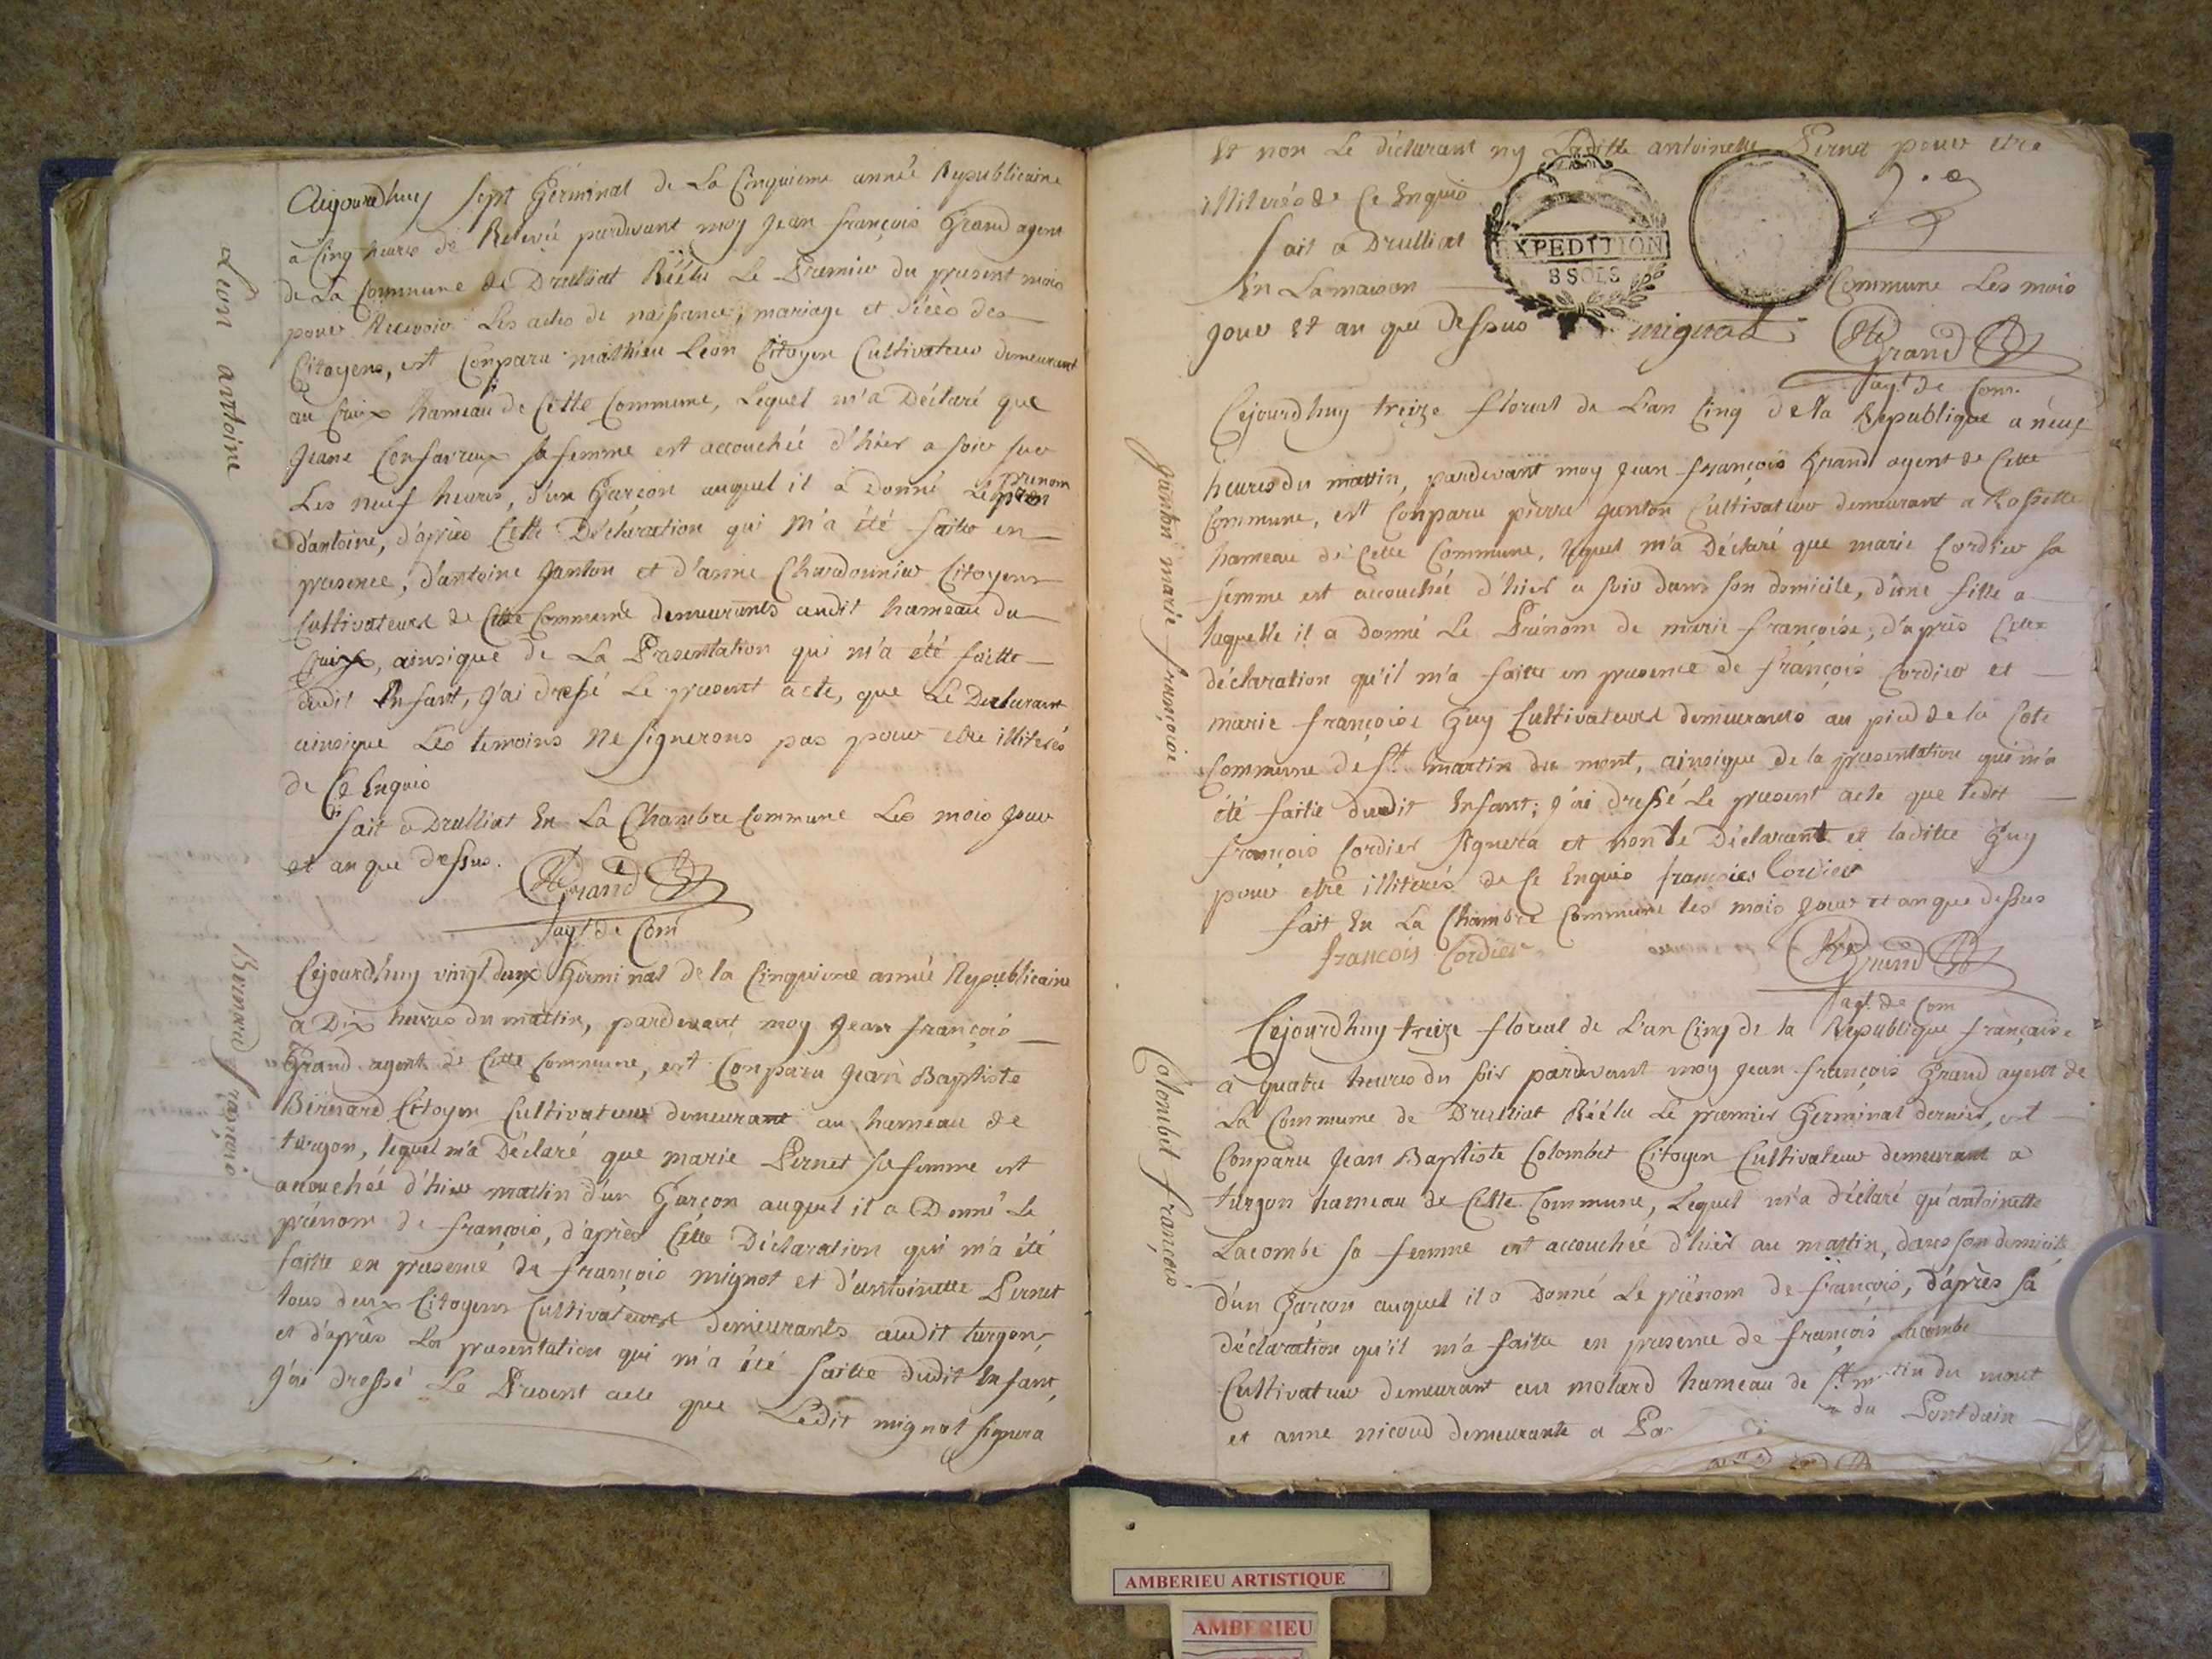 Aujourdhuy sept Germinal de La Cinquieme année Republicaine
a Cinq heures de Relevée pardevant moy Jean françois Grand agent
de La Commune de Drulliat Réélu Le Premier du present mois
pour Recevoir Les actes de naissance, mariage et décès des
Citoyens, est Conparu mathieu Léon Citoyen Cultivateur demeurant
au Cruix hameau de Cette Commune, Lequel m'a Déclaré que
Jeane Confavreux sa femme est accouchée d'hier a soir sur
Les neuf heures, d'un Garçon auquel il a Donné Le prenom
d'antoine, d'après Cette Déclaration qui m'a été faitte en
presence, d'antoine Janton et d'anne Chardounier Citoyens
Cultivateurs de Cette Commune demeurants audit hameau du
Cruix, ainsique de La Presentation qui m'a été faitte
dudit Enfant, J'ai dressé Le present acte, que Le Declarant
ainsique Les temoins Ne signerons pas pour etre illiterés
de Ce Enquis
fait a Drulliat En La Chambre Commune Les mois Jour
et an que dessus.
Grand
agt de Com
Léon antoine
Cejourdhuy vingt deux Germinal de la Cinquieme année Republicaine
a Dix heures du mattin, pardevant moy Jean françois
Grand agent de Cette Commune, est Conparu Jean Baptiste
Bernard Citoyen Cultivateur demeurant au hameau de
turgon, lequel m'a Déclaré que marie Pernet sa femme est
accouchée d'hier mattin d'un Garçon auquel il a Donné Le
prénom de françois, d'après Cette Déclaration qui m'a été
faitte en presence de françois mignot et d'antoinette Pernet
tous deux Citoyens Cultivateurs demeurants audit turgon,
et d'après La presentation qui m'a été faitte dudit Enfant,
J'ai dressé Le Present acte que Ledit mignot signera
Bernard françois
Et non Le déclarant ny Laditte antoinette Pernet pour etre
illiterés de Ce Enquis
fait a Drulliat
En La maison Commune Les mois
Jour et an que Dessus
EXPEDITION
8 SOLS
mignot
Grand
agt de Com.
Cejourdhuy treize floreal de L'an Cinq de la Republique a neuf
heures du mattin, pardevant moy Jean françois Grand agent de Cette
Commune, est Conparu pierre Janton Cultivateur demeurant a Rossette
hameau de Cette Commune, Lequel m'a Déclaré que marie Cordier sa
femme est accouchée d'hier a soir dans son domicile, d'une fille a
laquelle il a donné Le Prénom de marie françoise, d'après Cette
déclaration qu'il m'a faitte en presence de françois Cordier et
marie françoise Guy Cultivateurs demeurants au pied de la Cote
Commune de St. martin du mont, ainsique de la presentation qui m'a
été faitte dudit Enfant; J'ai dressé Le present acte que ledit
françois Cordier signera et non le Déclarant et laditte Guy
pour etre illiterés de Ce Enquis francois Cordier
fait En La Chambre Commune les mois Jour et an que dessus
francois Cordier
Grand
agt. de Com
Janton marie françoise
Cejourdhuy treize floreal de L'an Cinq de la Republique française
a quatre heures du soir pardevant moy Jean françois Grand agent de
La Commune de Drulliat Réélu Le premier Germinal dernier, est
Conparu Jean Baptiste Colombet Citoyen Cultivateur demeurant a
turgon hameau de Cette Commune, Lequel m'a déclaré qu'antoinette
Lacombe sa femme est accouchée d'hier au mattin, dans son domicile
d'un Garçon auquel il a Donné Le prénom de françois, d'après sa
déclaration qu'il m'a faitte en presence de françois Lacombe
Cultivateur demeurant au molard hameau de St. martin du mont
et anne nicoud demeurante a du Pontdain
Colombet françois
AMBERIEU ARTISTIQUE
AMBERIEU